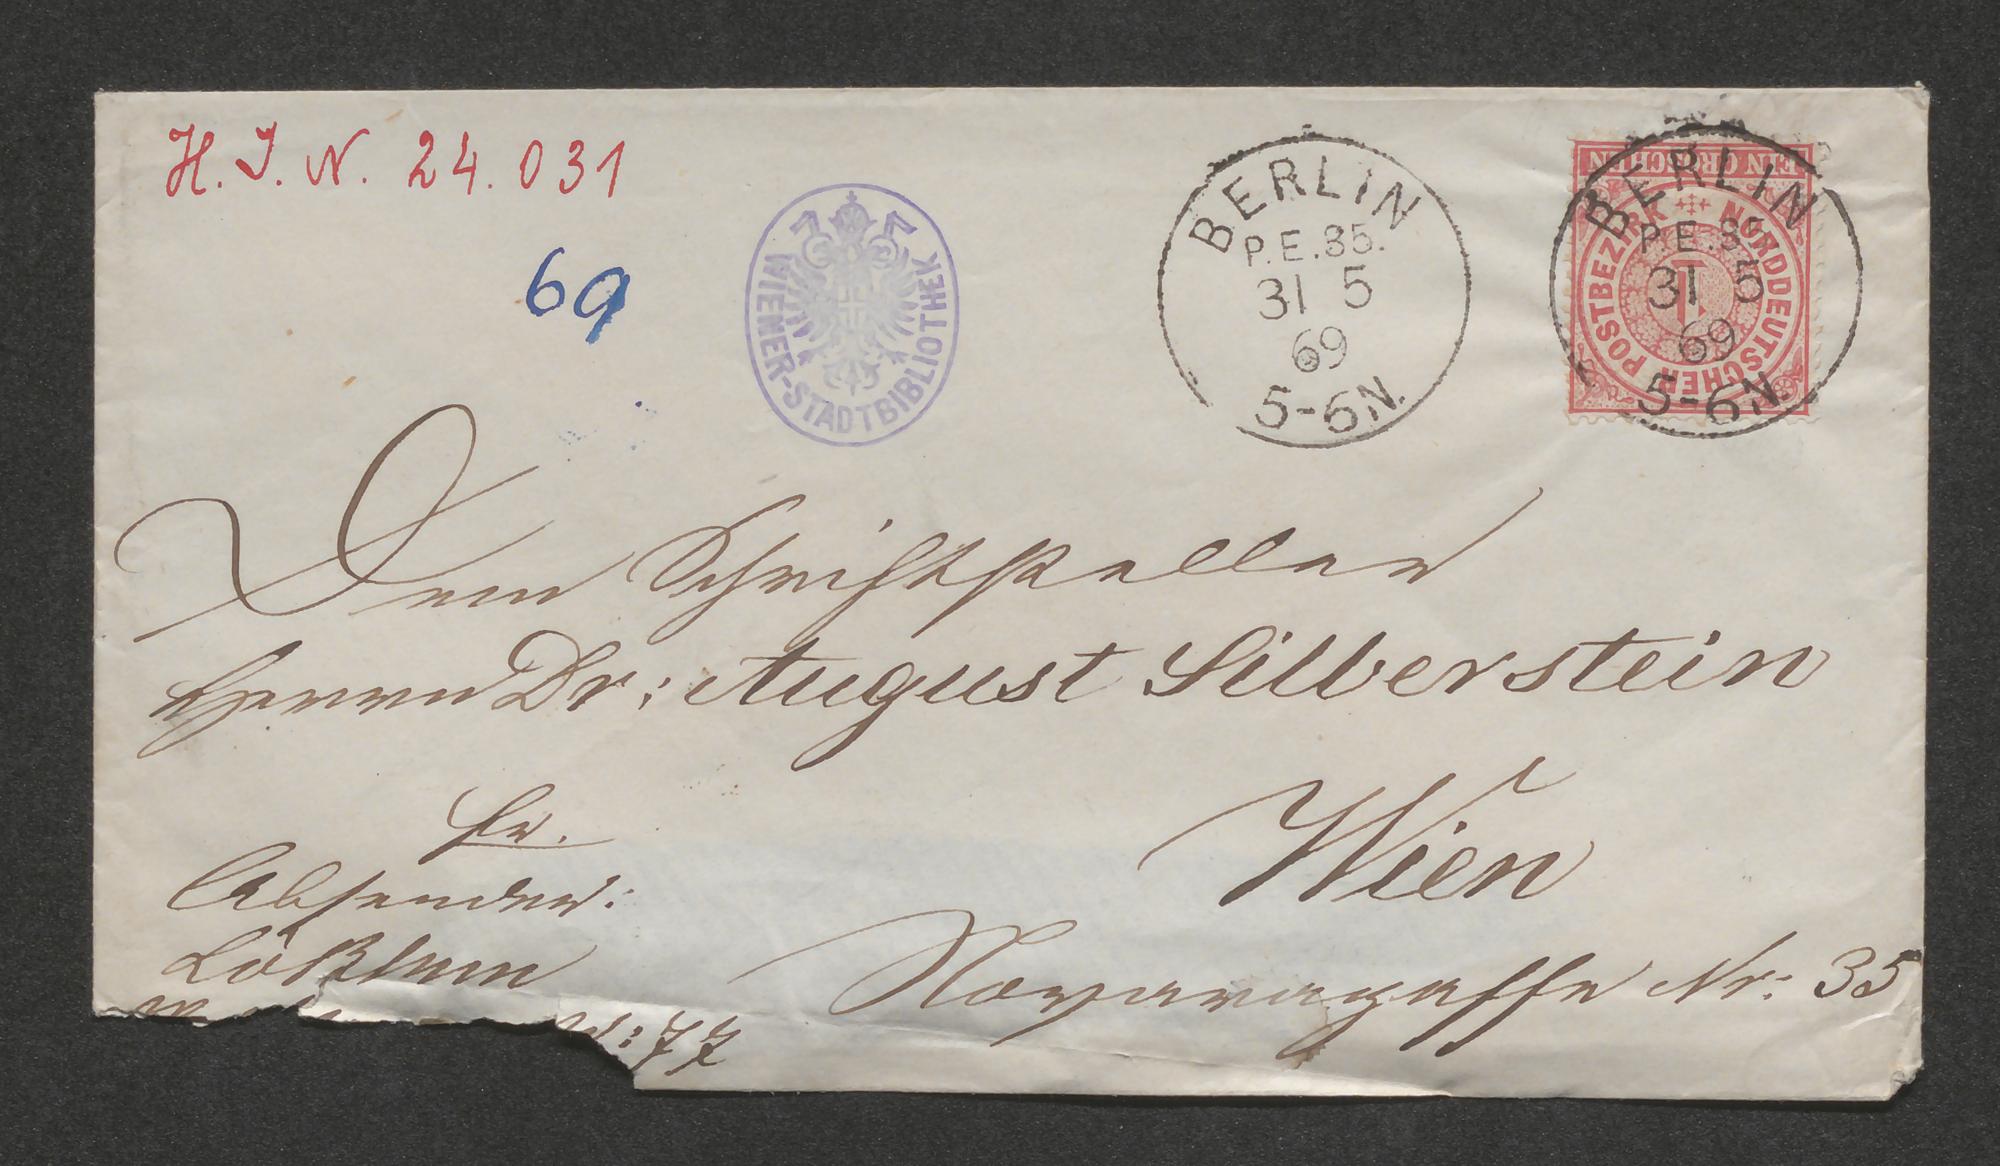 H. I. N. 24.031
69
WIENER-STADTBIBLIOTHEK
BERLIN
P.E.35.
31 5
69
5-6N.
EIN GROSCHEN
NORDDEUTSCHER POSTBEZIRK
1
BERLIN
P.E.35
31 5
69
5-6N.
Dem Schriftsteller
Herrn Dr: August Silberstein
Wien
Novaragasse Nr: 35
fr.
Absender:
Nr: 77